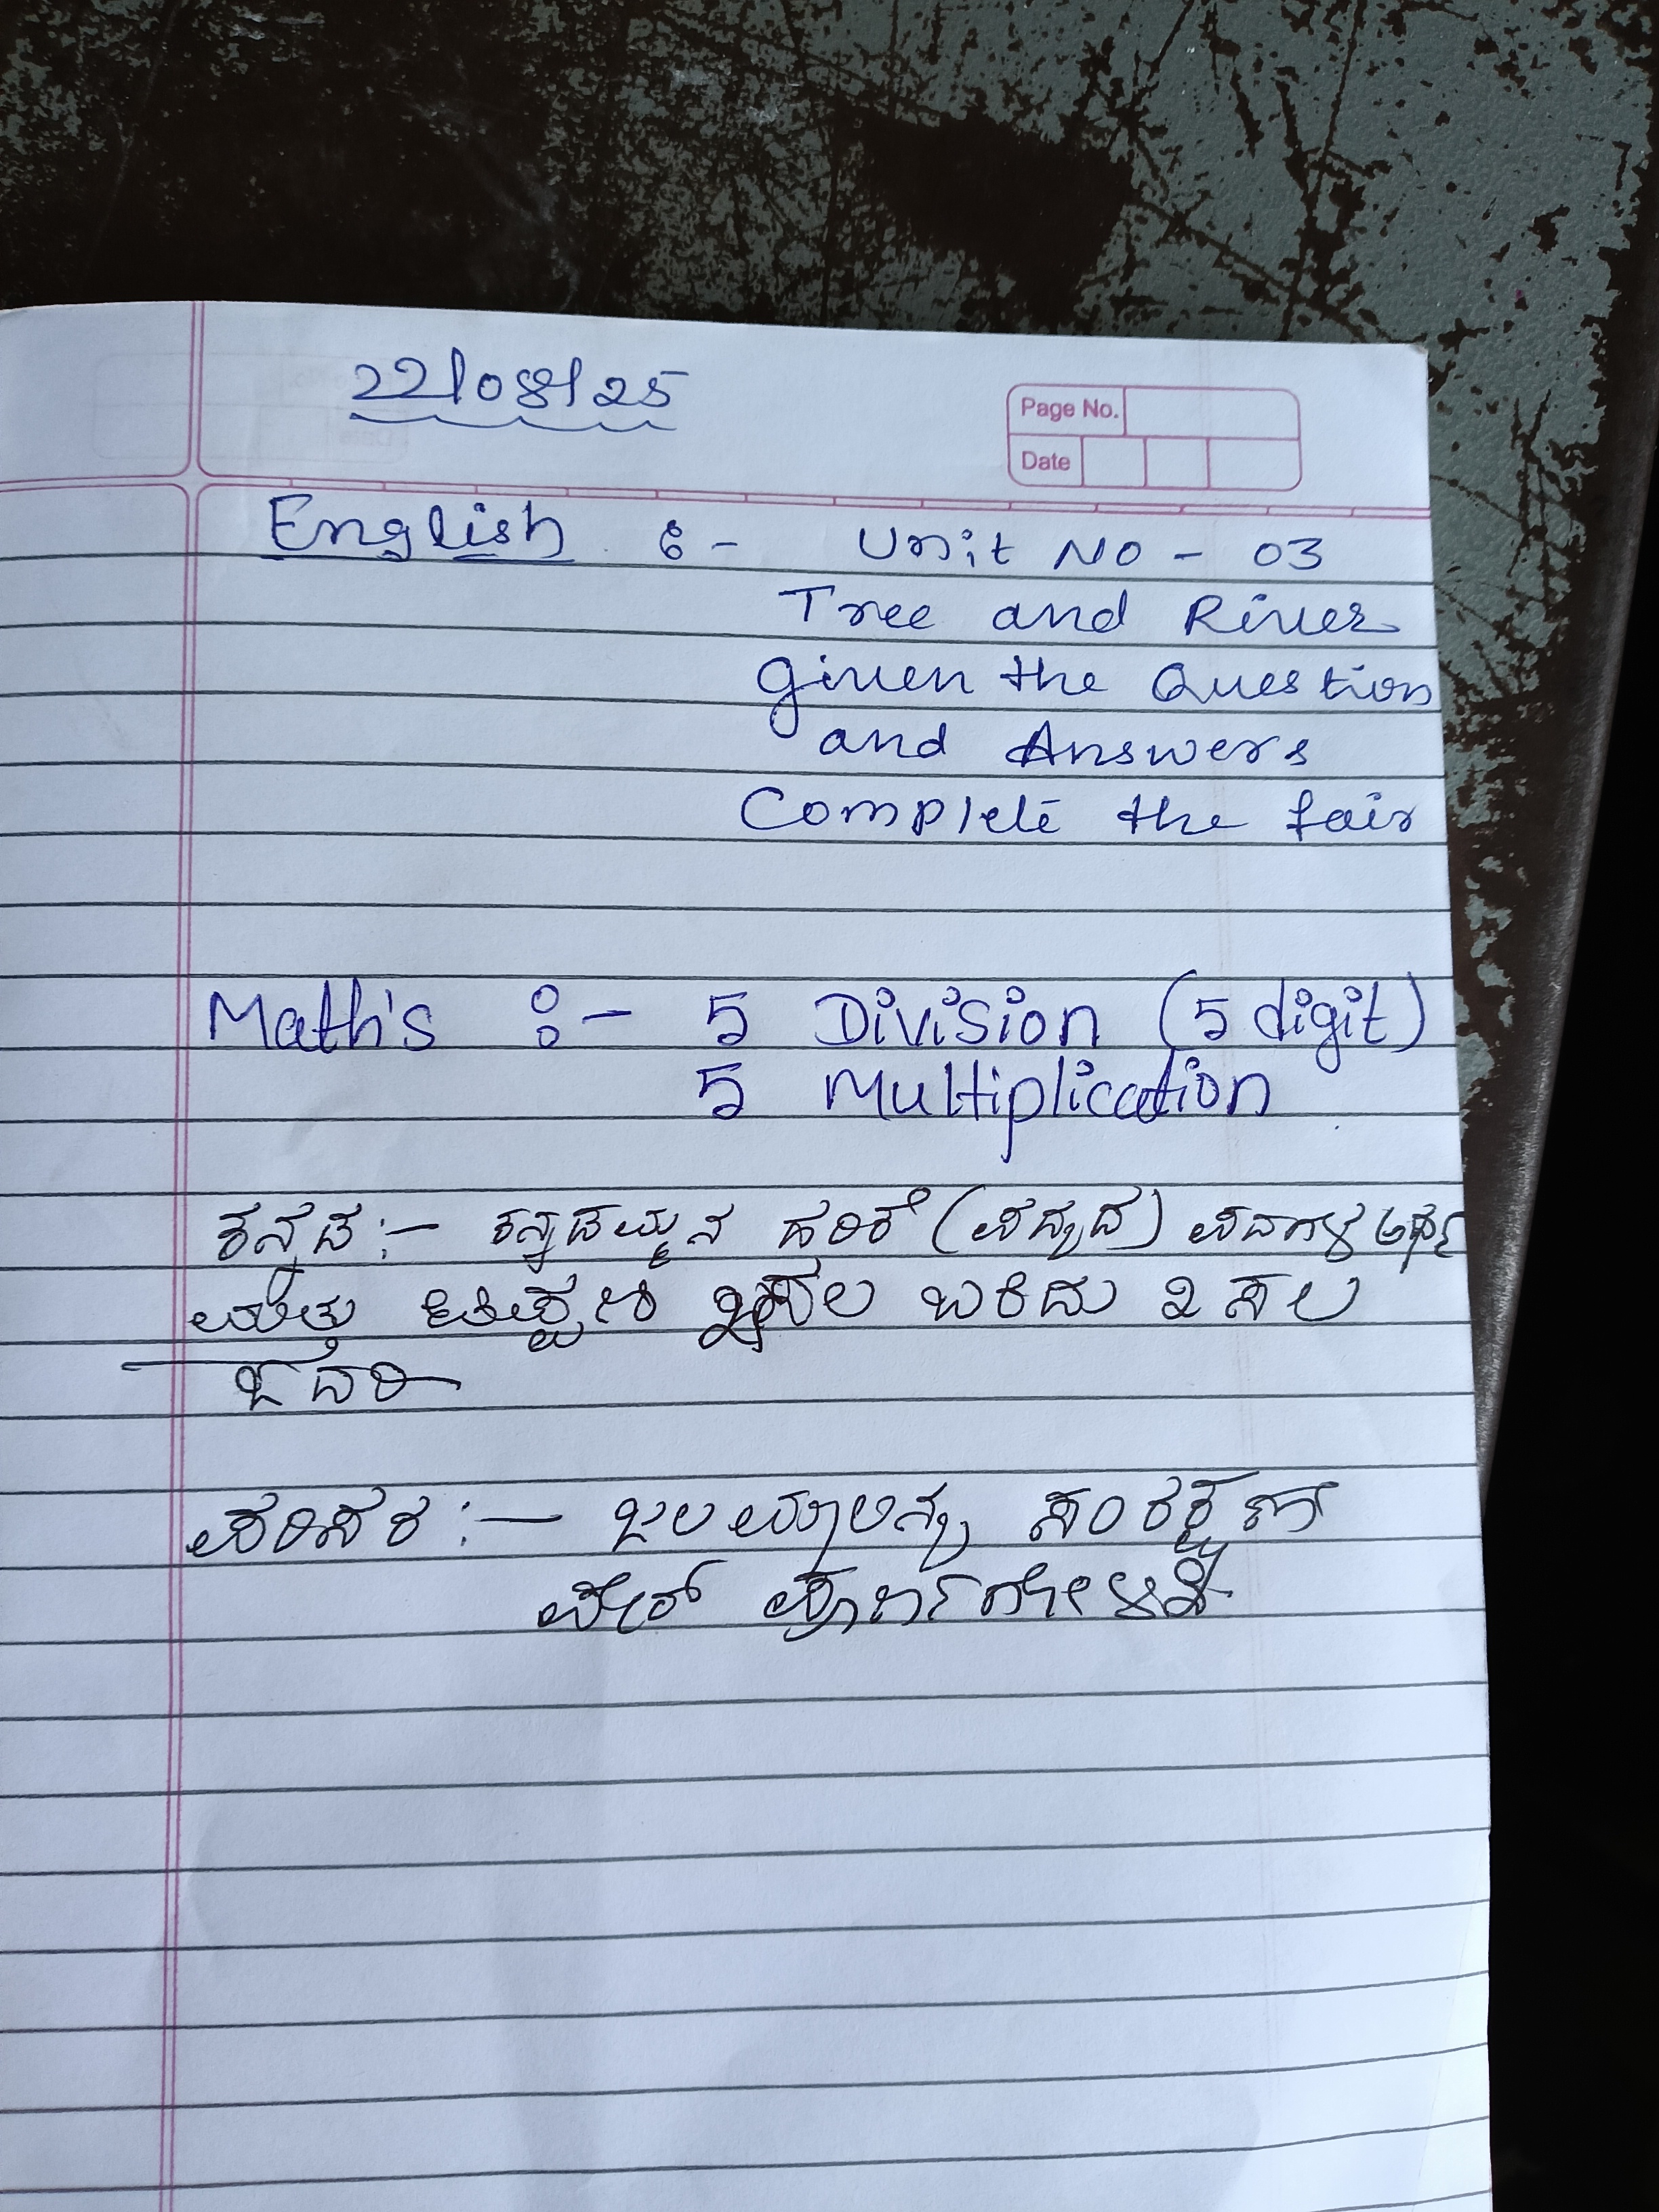 22/08/25
Page No.
Date
English :- Unit No - 03
Tree and River
given the Question
and Answers
Complete the fair
Math's :- 5 Division (5 digit)
5 Multiplication
ಕನ್ನಡ :- ಕನ್ನಡಮ್ಮನ ಹರಕೆ (ಪದ್ಯದ) ಪದಗಳ ಅರ್ಥ
ಮತ್ತು ಟಿಪ್ಪಣಿ ಬರೆದು 2 ಸಲ
ಓದಿರಿ
ಪರಿಸರ :- ಜಲಮಾಲಿನ್ಯ ಸಂರಕ್ಷಣಾ
ಪೂರ್ಣಗೊಳಿಸಿ